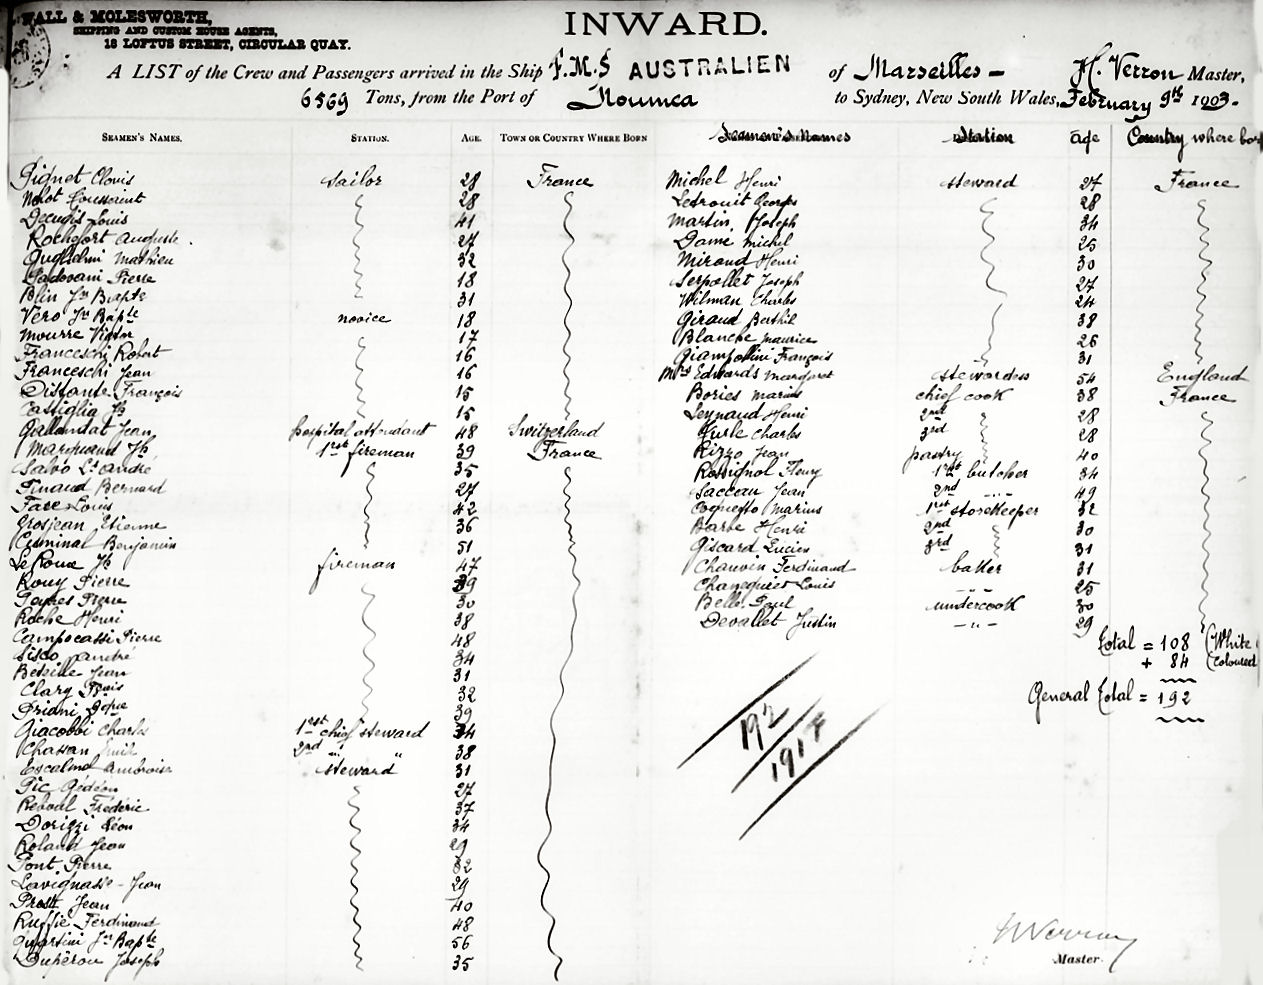 WALL & MOLESWORTH,
SHIPPING AND CUSTOM HOUSE AGENTS,
18 LOFTUS STREET, CIRCULAR QUAY.
INWARD.
A LIST of the Crew and Passengers arrived in the Ship F.M.S AUSTRALIEN of Marseilles - H. Verron Master,
6569 Tons, from the Port of Noumea to Sydney, New South Wales, February 9th 1903.
SEAMEN'S NAMES. STATION. AGE. TOWN OR COUNTRY WHERE BORN
Pignet Clovis sailor 28 France
28
Decugis Louis 41
Rochefort Auguste . 27
Guglielmi Mathieu 32
Padovani Pierre 18
Blin Jn Bapte 31
Vero Jn Bapte novice 18
Mourre Victor 17
Franceschi Robert 16
Franceschi Jean 16
Distante François 15
Castiglia Jh 15
Gallandat Jean hospital attendant 48 Switzerland
Marquand Jh 39 1rst fireman France
Salvo Lt André 35
Finaud Bernard 27
Fave Louis 42
Grosjean Etienne 36
Criminal Benjamin 51
Le Roux Jh fireman 47
Rouy Pierre 39
Pierre 30
Roche Henri 38
Campocassi Pierre 48
Sisco André 34
Jean 31
Clary 32
Priani 39
Giacobbi Charles 1rst chief steward 34
Chassan Emile 2nd " " 38
Escalmel Ambroise steward 31
Pic Gédéon 27
Reboul Frédéric 37
Dorizzi Léon 34
Roland Jean 29
Pont Pierre 32
Lavignasse - Jean 29
Prost Jean 40
Ruffié Ferdinand 48
Quartini Jn Bapte 56
Dupérou Joseph 35
Seamen's Names Station age Country where
Michel Henri steward 27 France
Ledrouit Georges 28
Martin Joseph 34
Dame Michel 25
Miraud Henri 30
Serpollet Joseph 27
Wilman Charles 24
Giraud Berthil 38
Blanche Maurice 26
Giampolini François 31
Mrs Edwards Margaret stewardess 54 England
Bories Marius chief cook 38 France
Leynaud Henri 2nd 28
Charles 3rd 28
Rizzo Jean pastry 40
Rossignol Fleury 1rst butcher 34
Saccau Jean 2nd 49
Marius 1rst storekeeper 32
Barbe Henri 2nd 30
Giscard Lucien 3rd 31
Chauvin Ferdinand baker 31
Louis 25
Belle Paul undercook 30
Devallet Justin - " - 29
Total = 108 (White
+ 84 (Coloured
General Total = 192
192
1917
H Verron
Master.